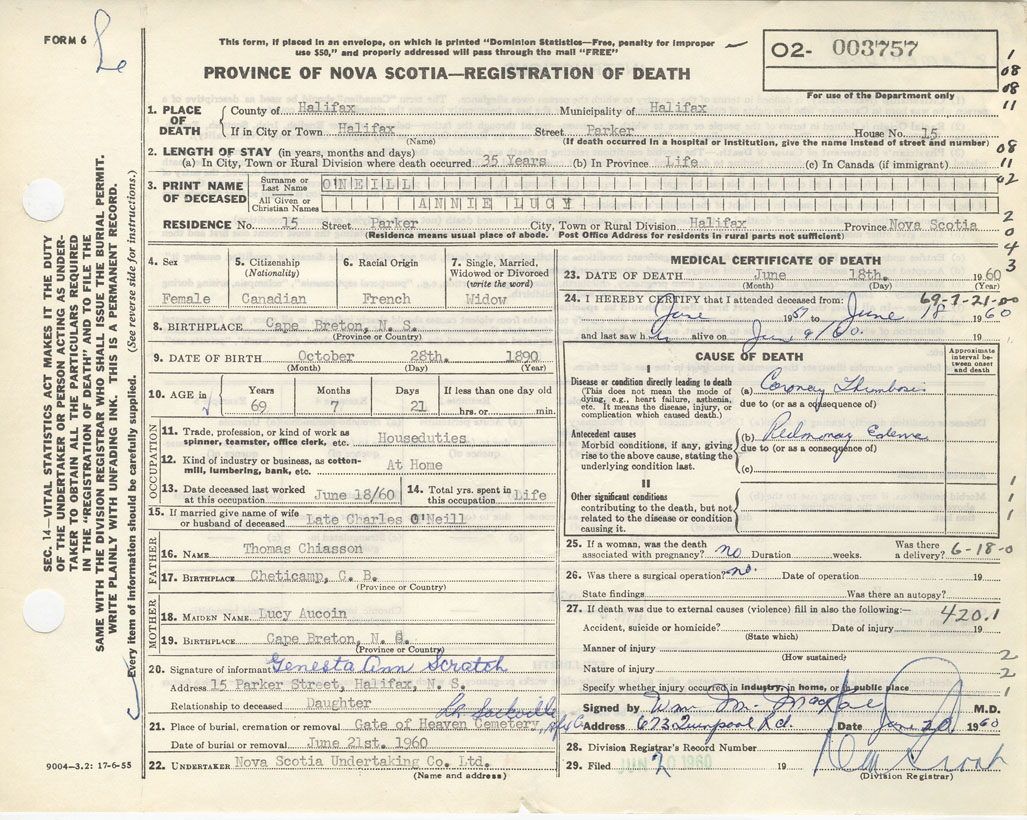 FORM 6
Le
This form, if placed in an envelope, on which is printed "Dominion Statistics—Free, penalty for improper
use $50," and properly addressed will pass through the mail "FREE"
02- 003757
For use of the Department only
PROVINCE OF NOVA SCOTIA—REGISTRATION OF DEATH
1. PLACE OF DEATH County of Halifax Municipality of Halifax
If in City or Town Halifax Street Parker House No. 15
(Name) (If death occurred in a hospital or Institution, give the name instead of street and number)
2. LENGTH OF STAY (in years, months and days)
(a) In City, Town or Rural Division where death occurred 35 Years (b) In Province Life (c) In Canada (if immigrant)
3. PRINT NAME OF DECEASED Surname or Last Name O'NEILL
All Given or Christian Names ANNIE LUCY
RESIDENCE No. 15 Street Parker City, Town or Rural Division Halifax Province Nova Scotia
(Residence means usual place of abode. Post Office Address for residents in rural parts not sufficient)
1
08
08
11
08
11
02
2
0
4
3
SEC. 14—VITAL STATISTICS ACT MAKES IT THE DUTY
OF THE UNDERTAKER OR PERSON ACTING AS UNDER-
TAKER TO OBTAIN ALL THE PARTICULARS REQUIRED
IN THE "REGISTRATION OF DEATH" AND TO FILE THE
SAME WITH THE DIVISION REGISTRAR WHO SHALL ISSUE THE BURIAL PERMIT.
WRITE PLAINLY WITH UNFADING INK. THIS IS A PERMANENT RECORD.
Every item of information should be carefully supplied. (See reverse side for instructions.)
4. Sex Female
5. Citizenship (Nationality) Canadian
6. Racial Origin French
7. Single, Married, Widowed or Divorced (write the word) Widow
8. BIRTHPLACE Cape Breton, N. S.
(Province or Country)
9. DATE OF BIRTH October 28th. 1890
(Month) (Day) (Year)
10. AGE in Years 69 Months 7 Days 21 If less than one day old hrs. or min.
OCCUPATION
11. Trade, profession, or kind of work as
spinner, teamster, office clerk, etc. Houseduties
12. Kind of industry or business, as cotton-
mill, lumbering, bank, etc. At Home
13. Date deceased last worked
at this occupation June 18/60
14. Total yrs. spent in
this occupation Life
15. If married give name of wife
or husband of deceased Late Charles O'Neill
FATHER
16. NAME Thomas Chiasson
17. BIRTHPLACE Cheticamp, C. B.
(Province or Country)
MOTHER
18. MAIDEN NAME Lucy Aucoin
19. BIRTHPLACE Cape Breton, N. S.
(Province or Country)
20. Signature of informant Genesta Ann Scratch
Address 15 Parker Street, Halifax, N. S.
Relationship to deceased Daughter
21. Place of burial, cremation or removal Gate of Heaven Cemetery, Lr. Sackville
Date of burial or removal June 21st. 1960
22. UNDERTAKER Nova Scotia Undertaking Co. Ltd.
(Name and address)
9004—3.2: 17-6-55
MEDICAL CERTIFICATE OF DEATH
23. DATE OF DEATH June 18th. 1960
(Month) (Day) (Year)
69-7-21-00
24. I HEREBY CERTIFY that I attended deceased from:
June 1957 to June 18 1960
and last saw her alive on Jun 9/60.
CAUSE OF DEATH
Approximate interval between onset and death
I
Disease or condition directly leading to death
(This does not mean the mode of
dying, e.g., heart failure, asthenia,
etc. It means the disease, injury, or
complication which caused death.)
(a) Coronary Thrombosis
due to (or as a consequence of)
Antecedent causes
Morbid conditions, if any, giving
rise to the above cause, stating the
underlying condition last.
(b) Pulmonary Edema
due to (or as a consequence of)
(c)
II
Other significant conditions
contributing to the death, but not
related to the disease or condition
causing it.
1
1
1
25. If a woman, was the death
associated with pregnancy? no Duration weeks. Was there
a delivery? 6-18-0
26. Was there a surgical operation? no. Date of operation 19
State findings Was there an autopsy?
27. If death was due to external causes (violence) fill in also the following:—
420.1
Accident, suicide or homicide? Date of injury 19
(State which)
Manner of injury
(How sustained)
Nature of injury
Specify whether injury occurred in industry, in home, or in public place
2
2
1
Signed by Wm. M. MacRae M.D.
Address Rd. Date June 20 1960
28. Division Registrar's Record Number
29. Filed JUN 20 1960 19
(Division Registrar)